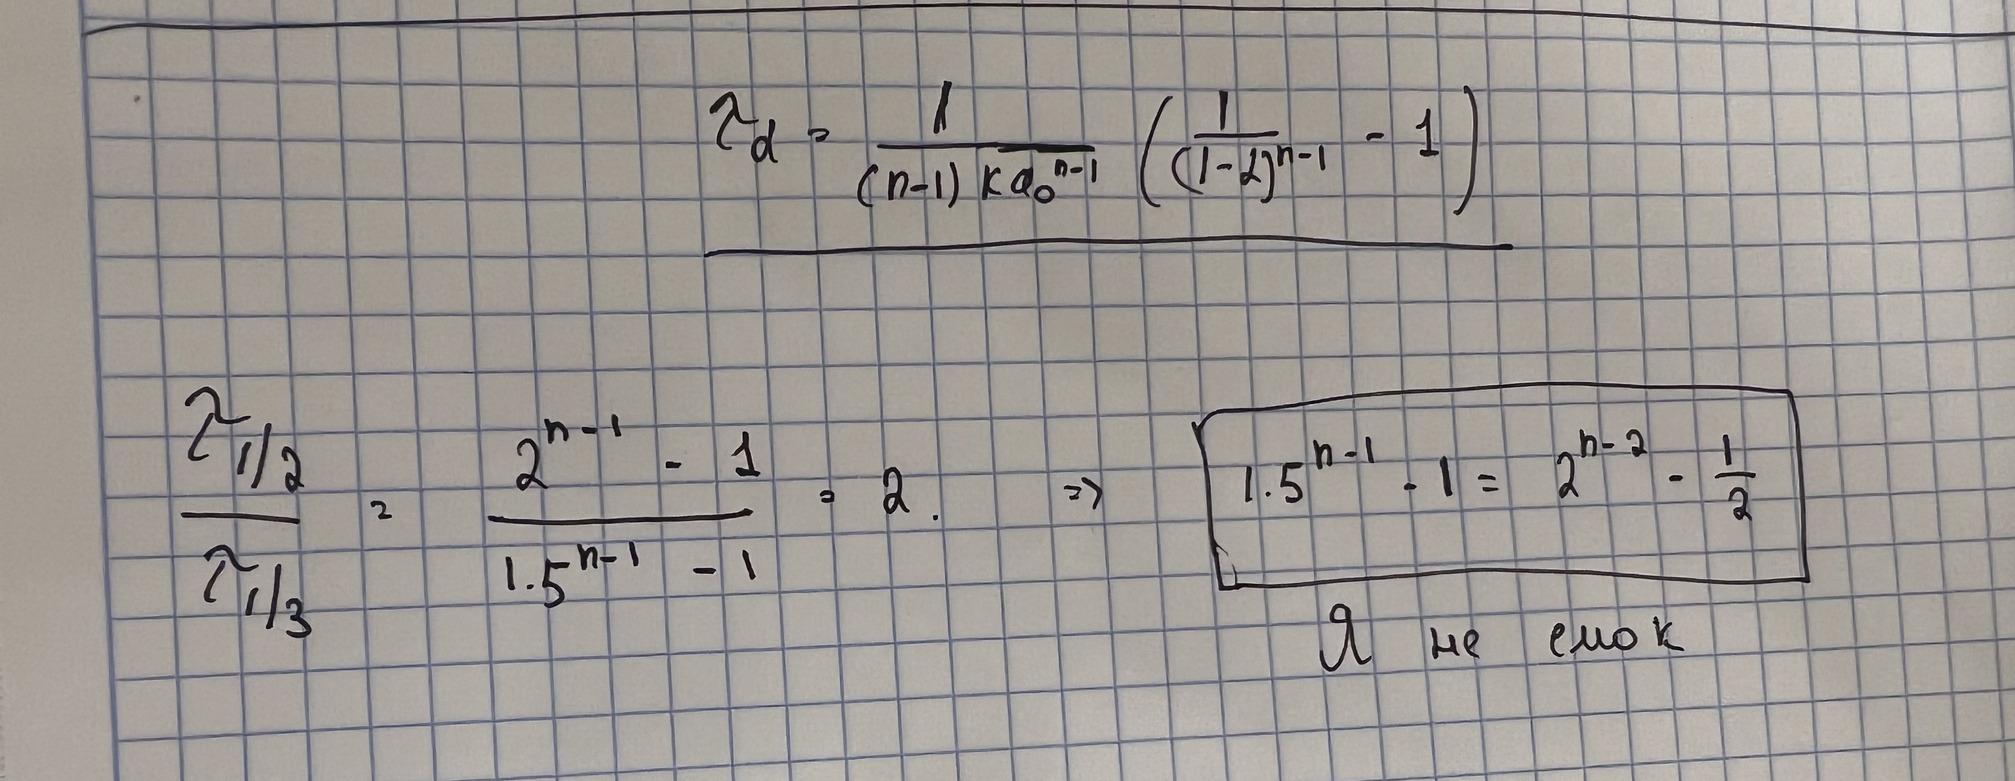 τ_d = 1 / ((n-1) k a₀^(n-1)) (1 / (1-α)^(n-1) - 1)
τ_1/2 / τ_1/3 = (2^(n-1) - 1) / (1.5^(n-1) - 1) = 2. => 1.5^(n-1) - 1 = 2^(n-2) - 1/2
Я не смок